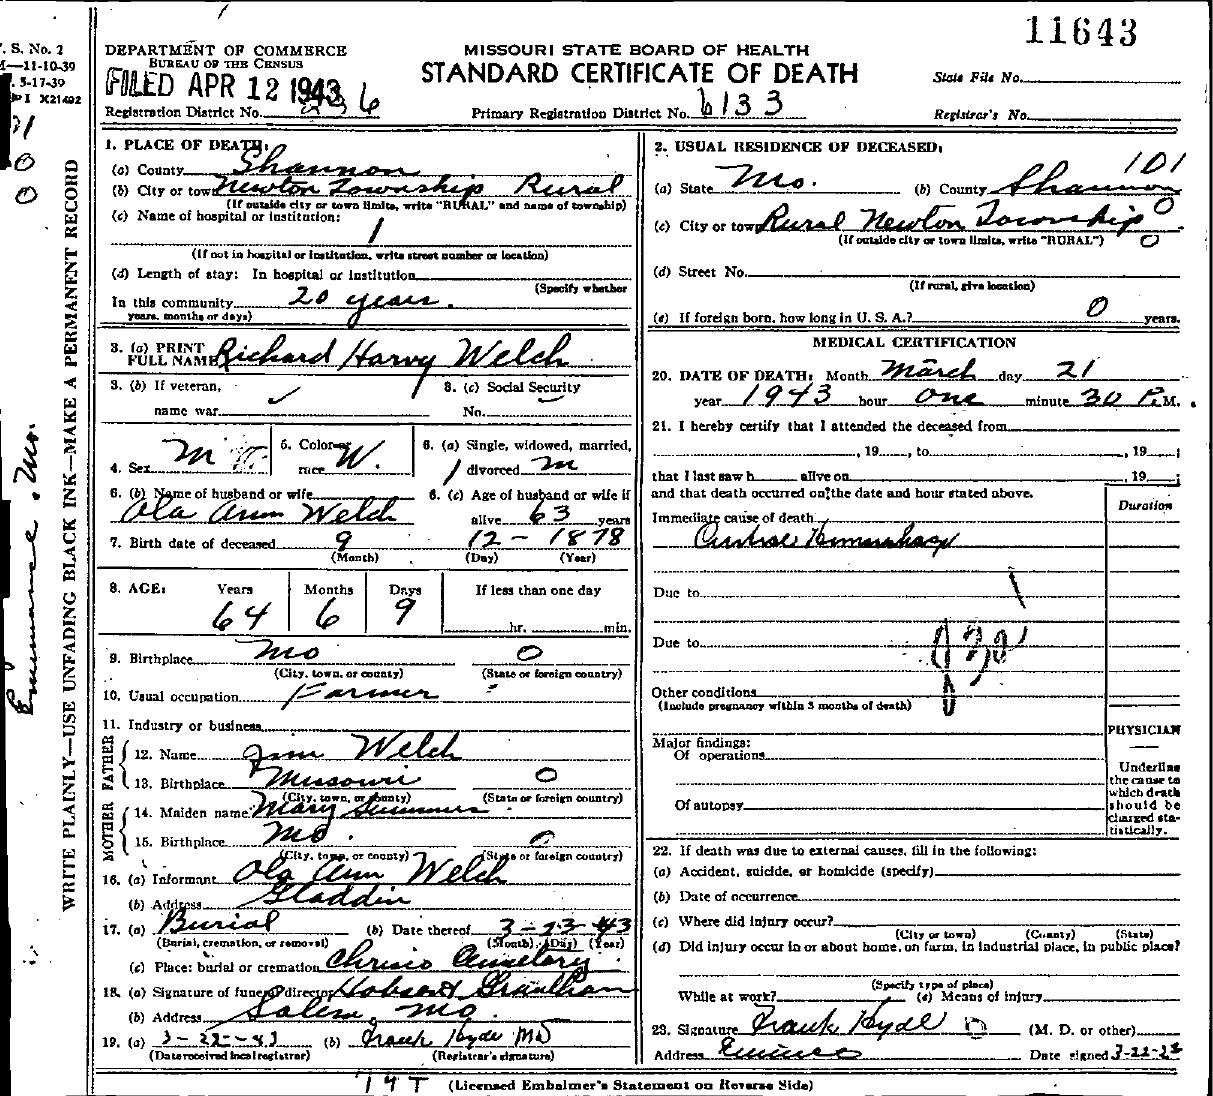 11643
V. S. No. 2
M—11-10-39
5-17-39
I X21492
DEPARTMENT OF COMMERCE
BUREAU OF THE CENSUS
MISSOURI STATE BOARD OF HEALTH
STANDARD CERTIFICATE OF DEATH
FILED APR 12 1943
State File No.
Registration District No. 6
Primary Registration District No. 6133
Registrar's No.
WRITE PLAINLY—USE UNFADING BLACK INK—MAKE A PERMANENT RECORD
Eminence, Mo.
1. PLACE OF DEATH:
(a) County Shannon
(b) City or town Newton Township Rural
(If outside city or town limits, write "RURAL" and name of township)
(c) Name of hospital or institution:
1
(If not in hospital or institution, write street number or location)
(d) Length of stay: In hospital or institution
(Specify whether
In this community 20 years.
years, months or days)
3. (a) PRINT
FULL NAME Richard Harvy Welch
3. (b) If veteran,
name war
3. (c) Social Security
No.
4. Sex M
5. Color or
race W.
6. (a) Single, widowed, married,
divorced m
6. (b) Name of husband or wife
Ola Ann Welch
6. (c) Age of husband or wife if
alive 63 years
7. Birth date of deceased 9 12-1878
(Month) (Day) (Year)
8. AGE: Years Months Days If less than one day
64 6 9 hr. min.
9. Birthplace Mo 0
(City, town, or county) (State or foreign country)
10. Usual occupation Farmer
11. Industry or business
FATHER
12. Name Jim Welch
13. Birthplace Missouri 0
(City, town, or county) (State or foreign country)
MOTHER
14. Maiden name Mary Summers
15. Birthplace Mo. 0
(City, town, or county) (State or foreign country)
16. (a) Informant Ola Ann Welch
(b) Address Gladden
17. (a) Burial (b) Date thereof 3-23-43
(Burial, cremation, or removal) (Month) (Day) (Year)
(c) Place: burial or cremation Cemetary
18. (a) Signature of funeral director Hobson Grantham
(b) Address Salem, Mo.
19. (a) 3-22-43 (b) Frank Hyde MD
(Date received local registrar) (Registrar's signature)
2. USUAL RESIDENCE OF DECEASED:
101
(a) State Mo. (b) County Shannon
0
(c) City or town Rural Newton Township
(If outside city or town limits, write "RURAL") 0
(d) Street No.
(If rural, give location)
(e) If foreign born, how long in U. S. A.? 0 years.
MEDICAL CERTIFICATION
20. DATE OF DEATH: Month March day 21
year 1943 hour one minute 30 P.M.
21. I hereby certify that I attended the deceased from
, 19 , to , 19 ;
that I last saw h alive on , 19 ;
and that death occurred on the date and hour stated above.
Duration
Immediate cause of death
Due to
Due to
Other conditions
(Include pregnancy within 3 months of death)
PHYSICIAN
Major findings:
Of operations
Of autopsy
Underline
the cause to
which death
should be
charged sta-
tistically.
22. If death was due to external causes, fill in the following:
(a) Accident, suicide, or homicide (specify)
(b) Date of occurrence
(c) Where did injury occur?
(City or town) (County) (State)
(d) Did injury occur in or about home, on farm, in industrial place, in public place?
(Specify type of place)
While at work? (e) Means of injury
23. Signature Frank Hyde D (M. D. or other)
Address Eminence Date signed 3-22-43
(Licensed Embalmer's Statement on Reverse Side)